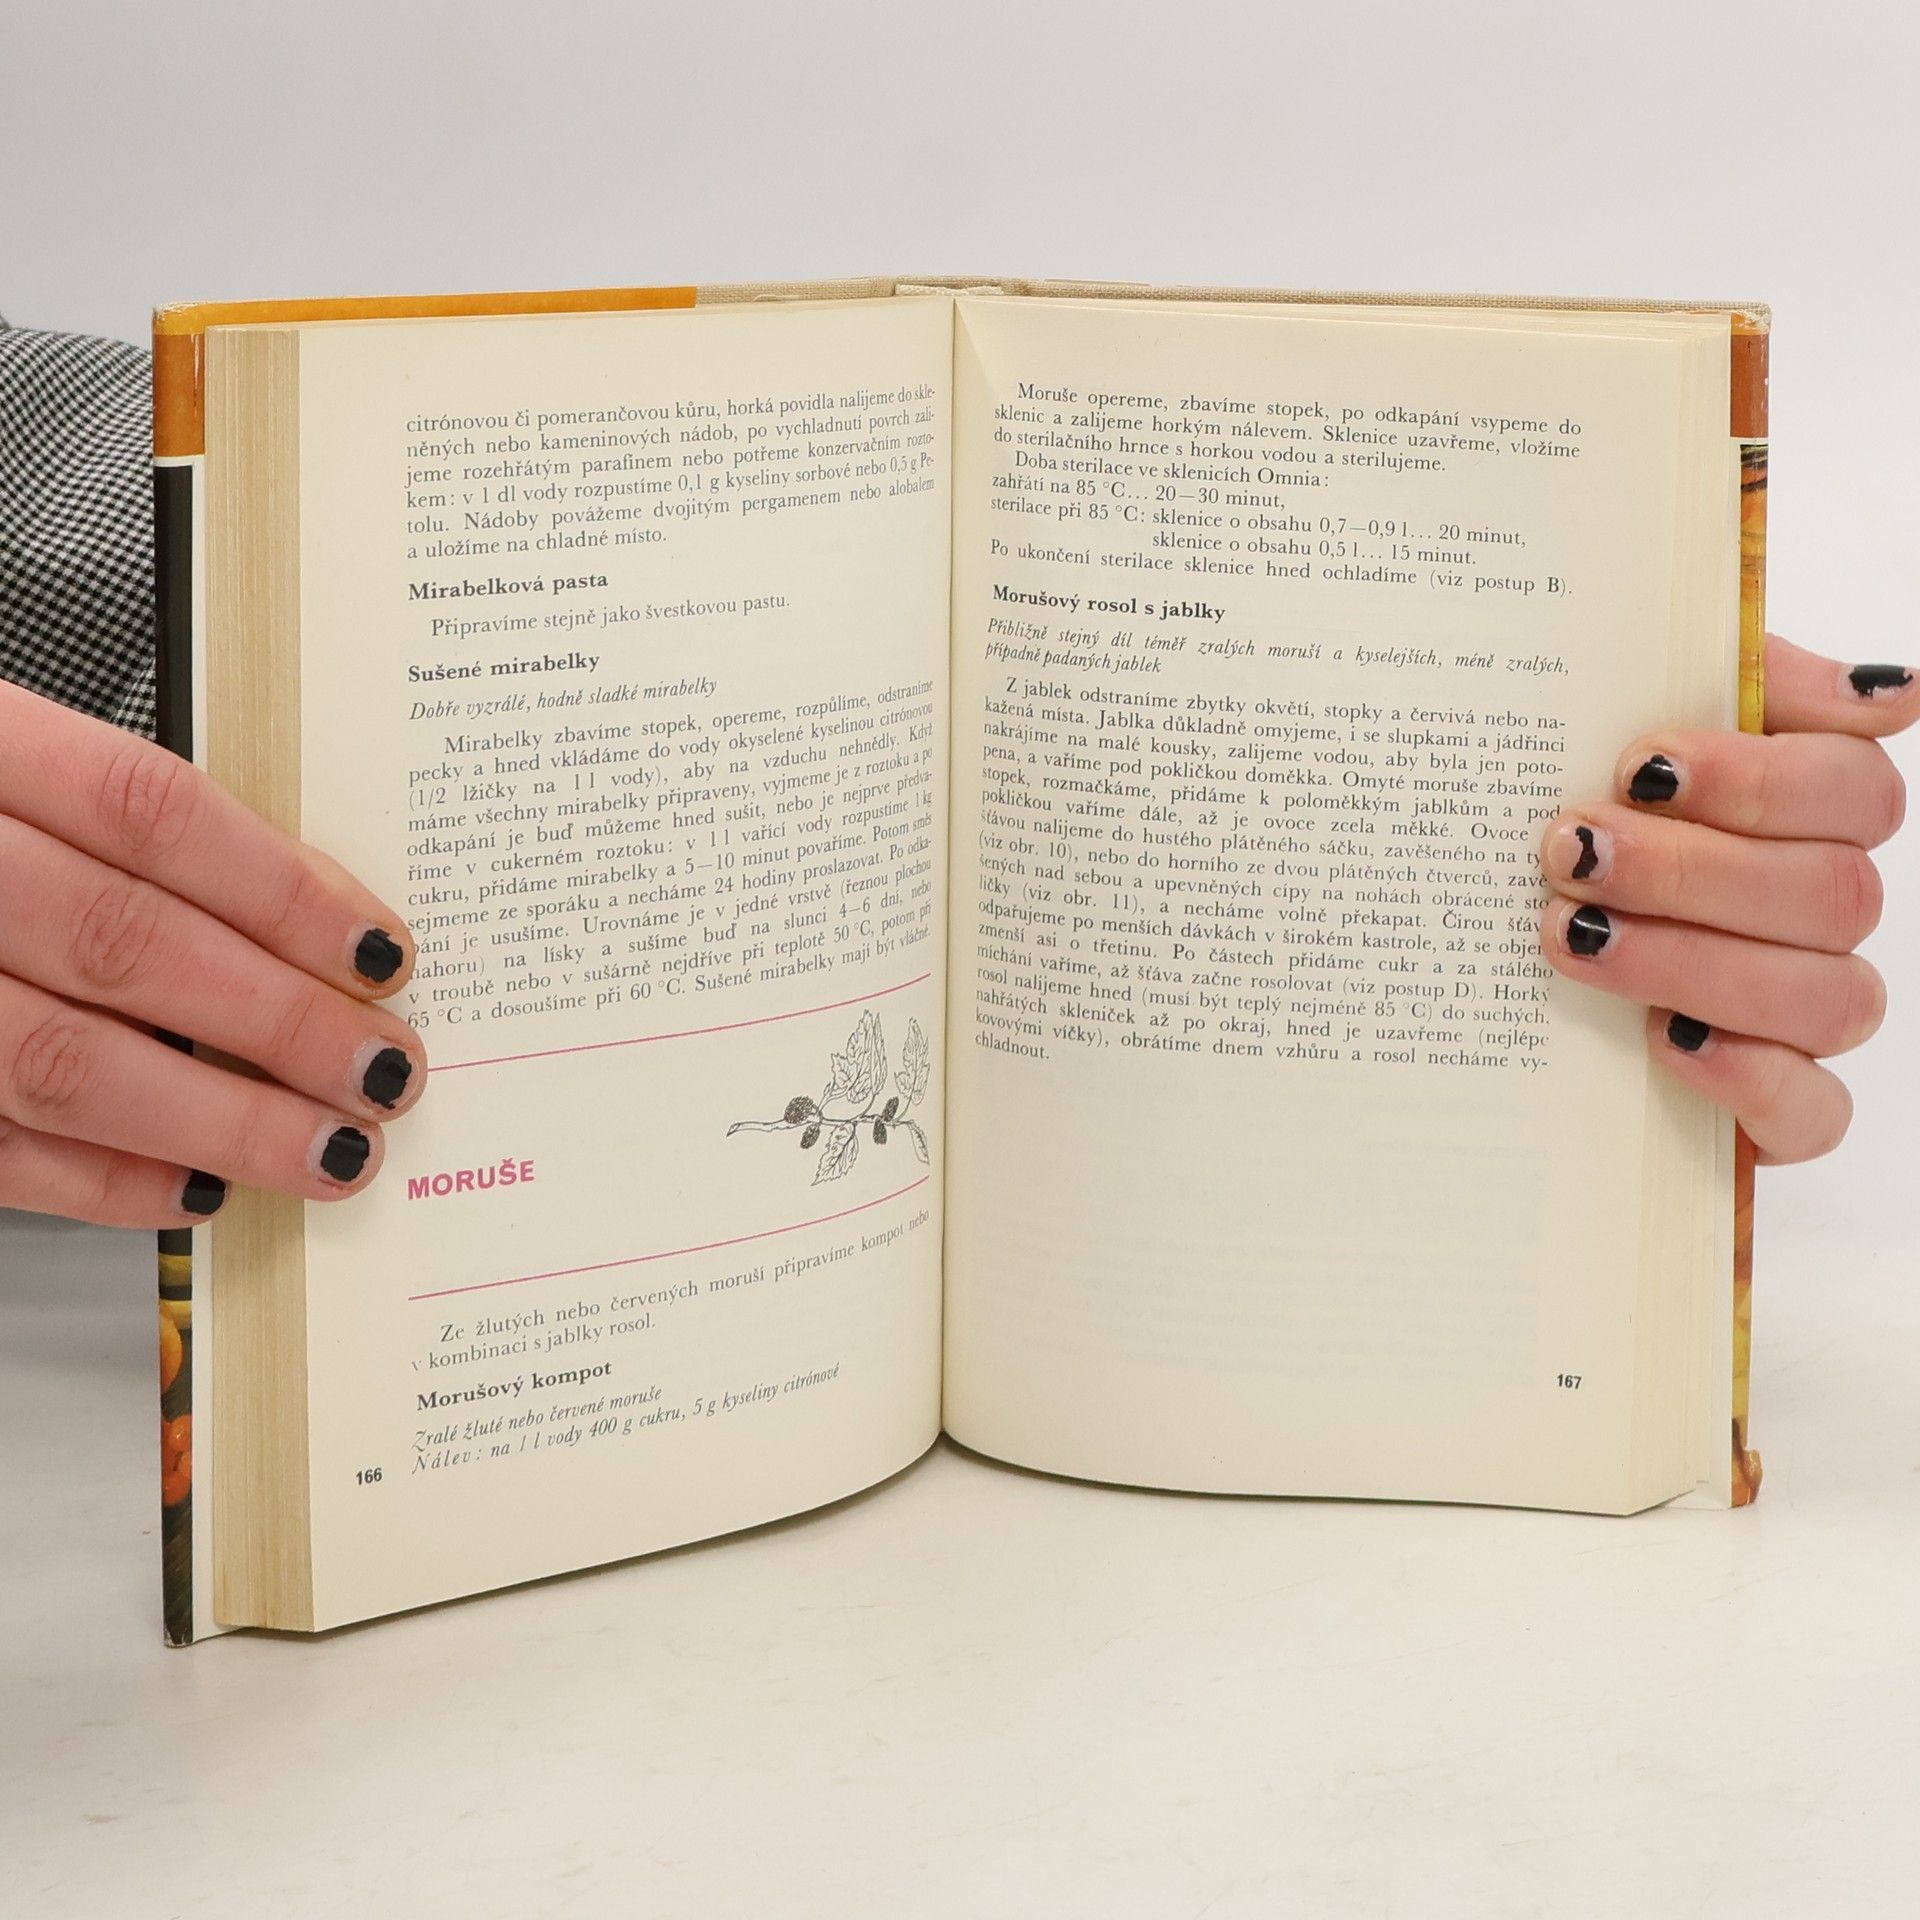 citrónovou či pomerančovou kůru, horká povidla nalijeme do skle-
něných nebo kameninových nádob, po vychladnutí povrch zali-
jeme rozehřátým parafinem nebo potřeme konzervačním rozto-
kem: v 1 dl vody rozpustíme 0,1 g kyseliny sorbové nebo 0,5 g Pe-
tolu. Nádoby povážeme dvojitým pergamenem nebo alobalem
a uložíme na chladné místo.
Mirabelková pasta
Připravíme stejně jako švestkovou pastu.
Sušené mirabelky
Dobře vyzrálé, hodně sladké mirabelky
Mirabelky zbavíme stopek, opereme, rozpůlíme, odstraníme
pecky a hned vkládáme do vody okyselené kyselinou citrónovou
(1/2 lžičky na 1 l vody), aby na vzduchu nehnědly. Když
máme všechny mirabelky připraveny, vyjmeme je z roztoku a po
odkapání je buď můžeme hned sušit, nebo je nejprve předva-
říme v cukerném roztoku: v 1 l vařící vody rozpustíme 1 kg
cukru, přidáme mirabelky a 5—10 minut povaříme. Potom směs
sejmeme ze sporáku a necháme 24 hodiny proslazovat. Po odka-
pání je usušíme. Urovnáme je v jedné vrstvě (řeznou plochou
nahoru) na lísky a sušíme buď na slunci 4—6 dní, nebo
v troubě nebo v sušárně nejdříve při teplotě 50 °C, potom při
65 °C a dosoušíme při 60 °C. Sušené mirabelky mají být vláčné.
MORUŠE
Ze žlutých nebo červených moruší připravíme kompot nebo
v kombinaci s jablky rosol.
Morušový kompot
Zralé žluté nebo červené moruše
Nálev: na 1 l vody 400 g cukru, 5 g kyseliny citrónové
166
Moruše opereme, zbavíme stopek, po odkapání vsypeme do
sklenic a zalijeme horkým nálevem. Sklenice uzavřeme, vložíme
do sterilačního hrnce s horkou vodou a sterilujeme.
Doba sterilace ve sklenicích Omnia:
zahřátí na 85 °C... 20—30 minut,
sterilace při 85 °C: sklenice o obsahu 0,7—0,9 l... 20 minut,
sklenice o obsahu 0,5 l... 15 minut.
Po ukončení sterilace sklenice hned ochladíme (viz postup B).
Morušový rosol s jablky
Přibližně stejný díl téměř zralých moruší a kyselejších, méně zralých,
případně padaných jablek
Z jablek odstraníme zbytky okvětí, stopky a červivá nebo na-
kažená místa. Jablka důkladně omyjeme, i se slupkami a jádřinci
nakrájíme na malé kousky, zalijeme vodou, aby byla jen poto-
pena, a vaříme pod pokličkou doměkka. Omyté moruše zbavíme
stopek, rozmačkáme, přidáme k poloměkkým jablkům a pod
pokličkou vaříme dále, až je ovoce zcela měkké. Ovoce
šťávou nalijeme do hustého plátěného sáčku, zavěšeného na ty
(viz obr. 10), nebo do horního ze dvou plátěných čtverců, zavě
šených nad sebou a upevněných cípy na nohách obrácené sto
ličky (viz obr. 11), a necháme volně překapat. Čirou šťáv
odpařujeme po menších dávkách v širokém kastrole, až se objem
zmenší asi o třetinu. Po částech přidáme cukr a za stálého
míchání vaříme, až šťáva začne rosolovat (viz postup D). Horký
rosol nalijeme hned (musí být teplý nejméně 85 °C) do suchých,
nahřátých skleniček až po okraj, hned je uzavřeme (nejlépe
kovovými víčky), obrátíme dnem vzhůru a rosol necháme vy-
chladnout.
167